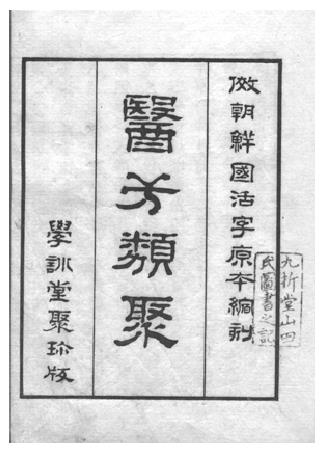 傚朝鮮國活字原本縮刻
九折堂山田
氏圖書之記
醫方類聚
學訓堂聚珍版